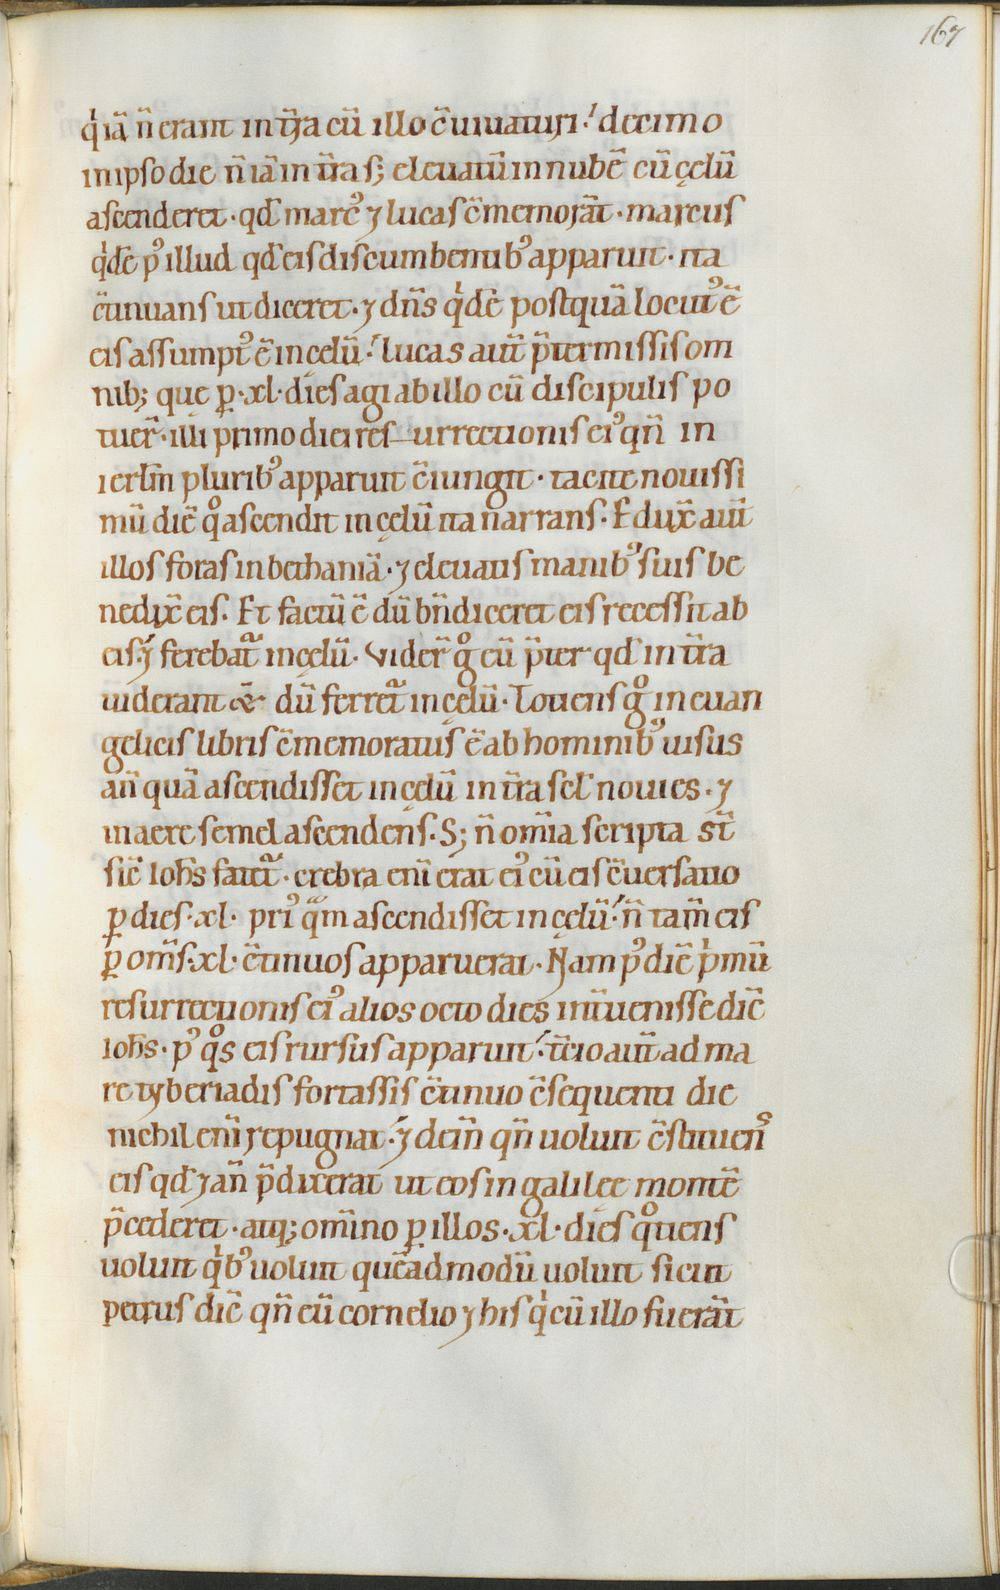 167
q̍ iā n̄ erant in tr̄a cū illo c̄uiuaturi: decimo
in ipso die n̄ iā in tr̄a s; eleuatū in nubē cū cęlū
ascenderet · qđ marcꝰ ⁊ lucas c̄memorāt · marcus
q̍dē pꝰ illud qđ eis discumbentibꝰ apparuit · ita
c̄tinuans ut diceret · ⁊ dn̄s q̍dē postquā locutꝰ ē
eis assumptꝰ ē in cęlū: lucas autē p̄termissis om
nib; que ꝑ · xl · dies agi ab illo cū discipulis po
tuer̄ · illi primo diei res urrectionis eiꝰ qn̄ in
ierl̄m pluribꝰ apparuit c̄iungit · tacite nouissi
mū diē qͦ ascendit in cęlū ita narrans · Eduxͨ autē
illos foras in bethaniā · ⁊ eleuatis manibꝰ suis be
nedix̄ eis · Et factū ē dū bn̄diceret eis recessit ab
eis · ⁊ ferebat᷑ in cęlū · Vider̄ gͦ eū p̄ter qđ in tr̄a
uiderant &̄ dū ferret᷑ in cęlū · Totiens gͦ in euan
gelicis libris c̄memoratus ē ab hominibꝰ uisus
an̄ quā ascendisset in cęlū in tr̄a scl̄ nouies · ⁊
in aere semel ascendens · S; n̄ om̄ia scripta st̄
sic̄ Ioh̄s fatet᷑ · crebra enī erat eiꝰ cū eis c̄uersatio
ꝑ dies · xl · priꝰ qͣm ascendisset in cęlū: n̄ tam̄ eis
ꝑ om̄s · xl · c̄tinuos apparuerat · Nam pꝰ diē p̍mū
resurrectionis eiꝰ alios octo dies int̄uenisse dic̄
Ioh̄s · pꝰ qͦs eis rursus apparuit: t̄cio autē ad ma
re tyberiadis fortassis c̄tinuo c̄sequenti die
nichil enī repugnat · ⁊ dein̄ qn̄ uoluit c̄stituen̄s
eis qđ ⁊ an̄ p̄dixerat ut eos in galilee montē
p̄cederet · atq; om̄ino ꝑ illos · xl · dies qͦtiens
uoluit q̍bꝰ uoluit quēadmodū uoluit sicut
petrus dic̄ qn̄ eū cornelio ⁊ his q̍ cū illo fuerāt